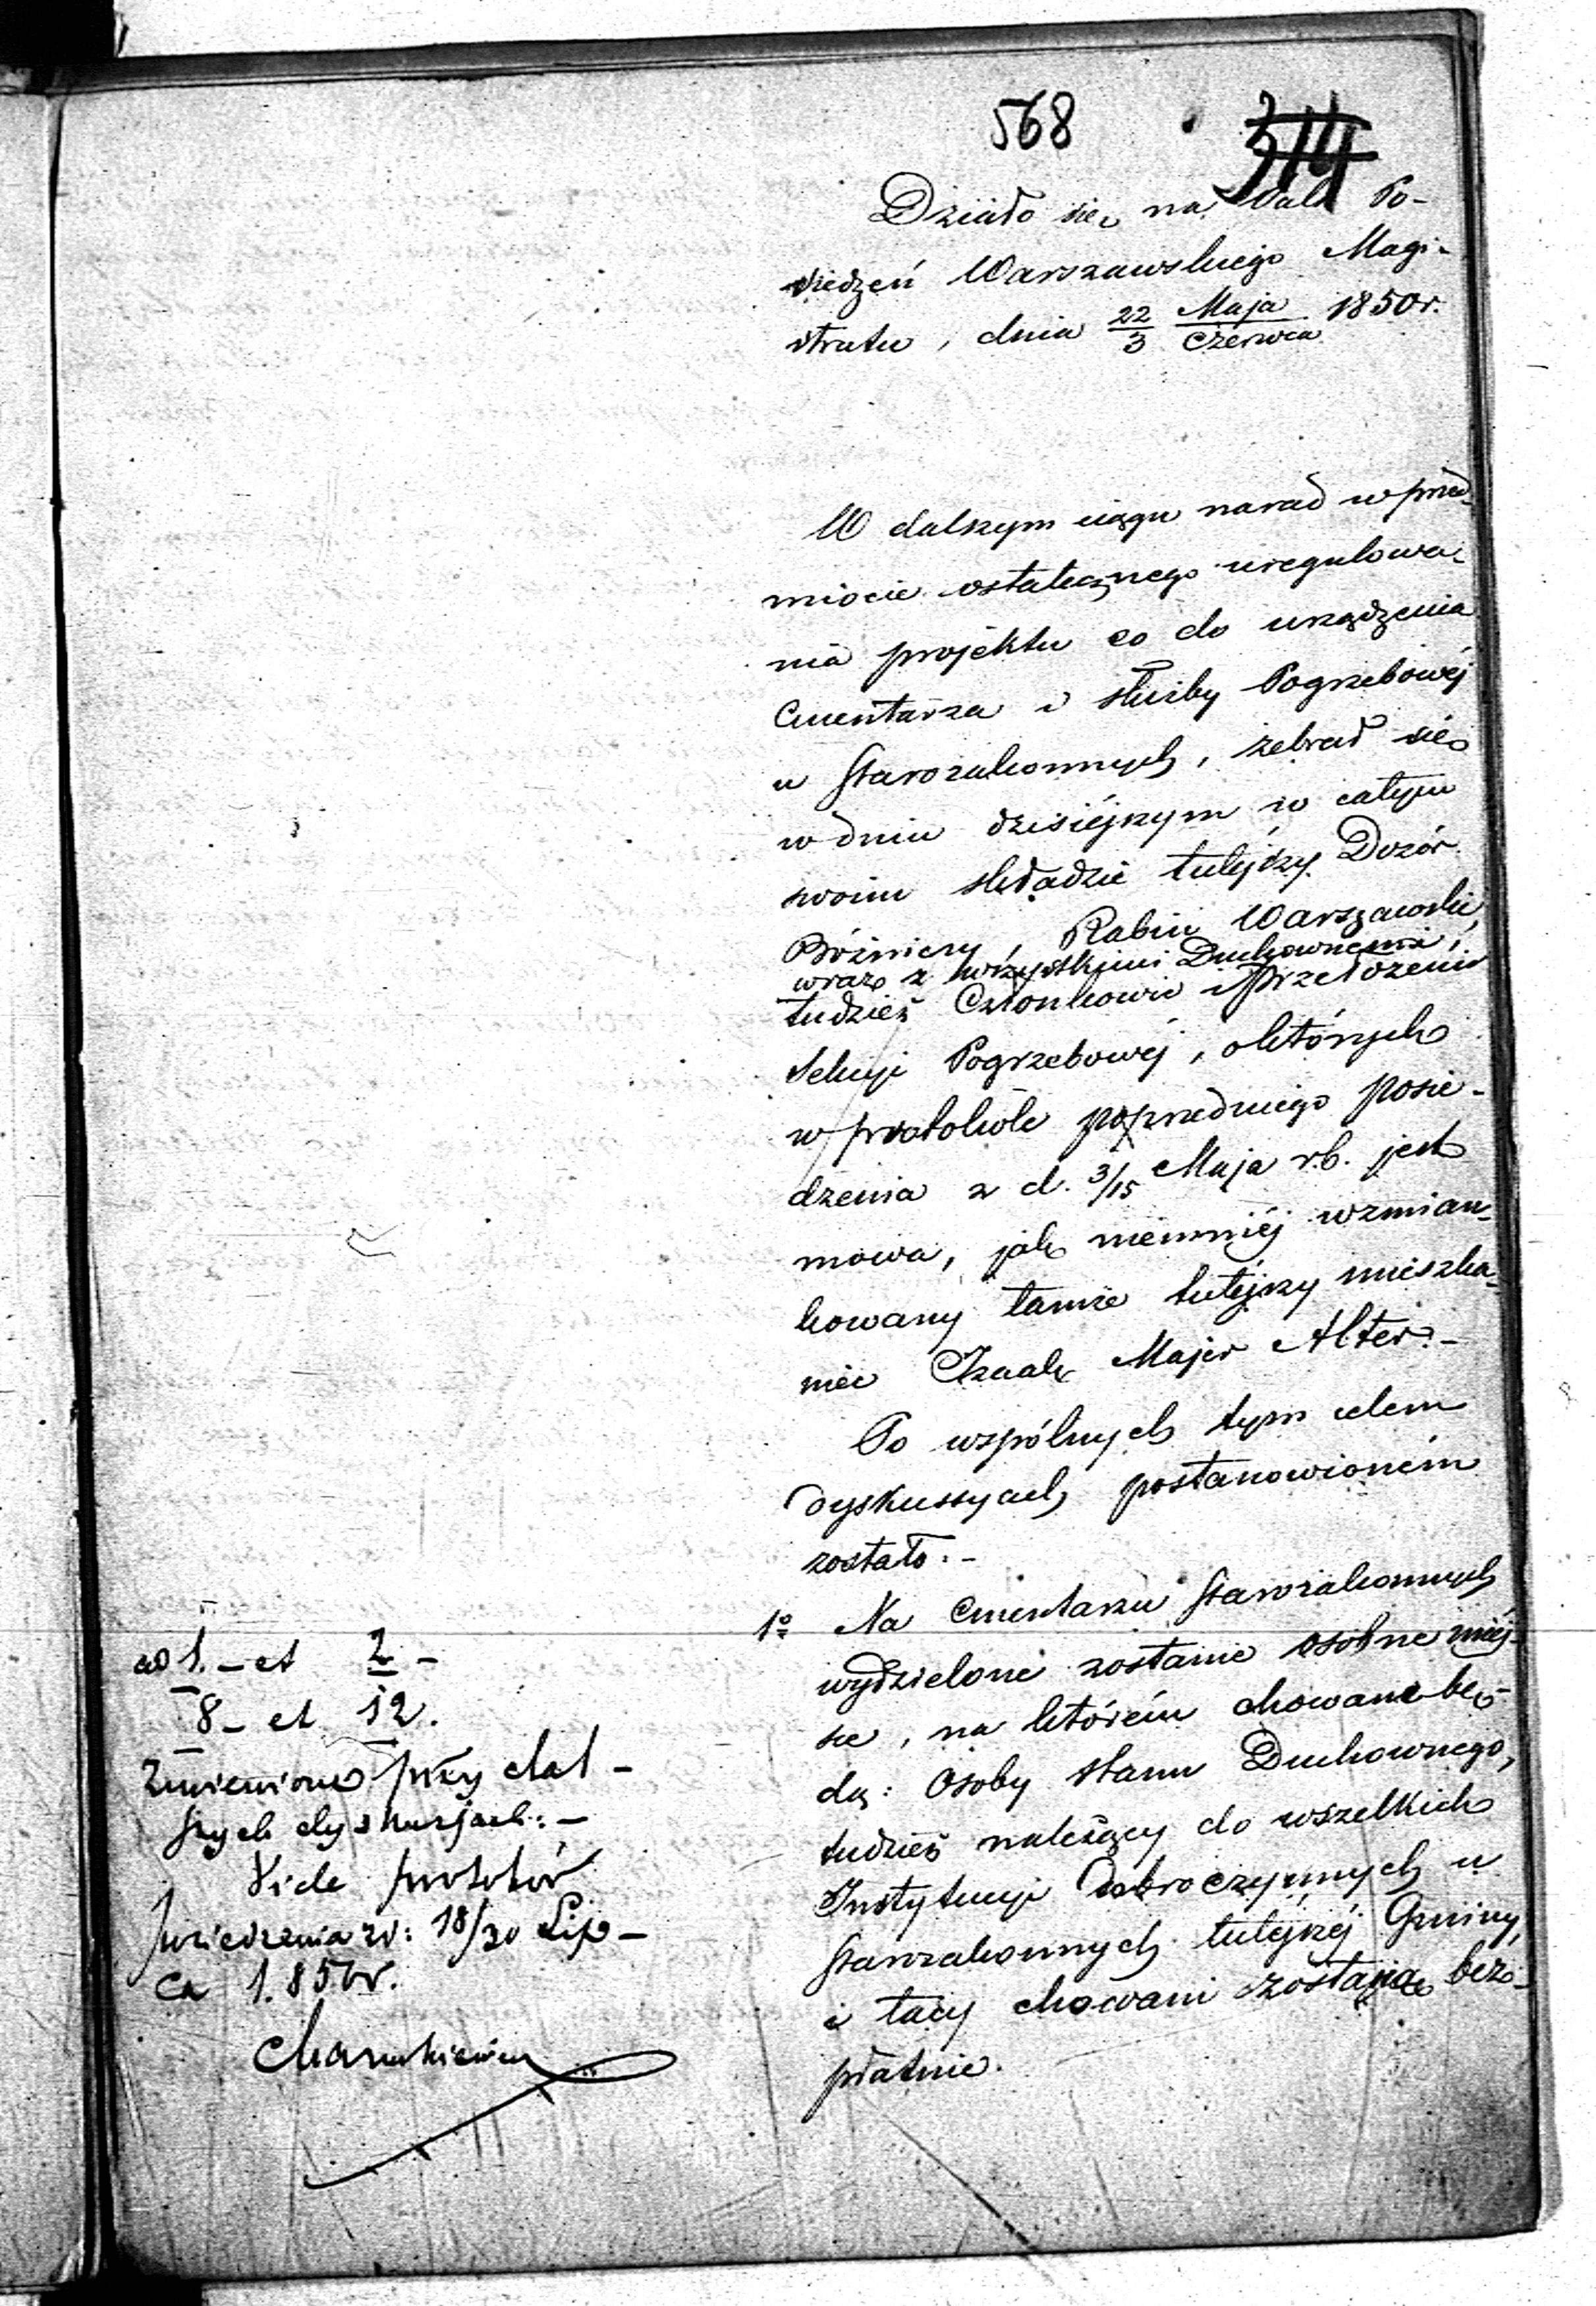 568 314
Działo się na Sali Po-
siedzeń Warszawskiego Magi-
stratu, dnia 22/3 Maja/Czerwca 1850 r.
W dalszym ciągu narad w przed-
miocie ostatecznego uregulowa-
nia projektu co do urządzenia
Cmentarza i służby Pogrzebowéj
u Starozakonnych, zebrał się
w dniu dzisiéjszym w całym
swoim składzie tutéjszy Dozór
Bóżniczy, Rabin Warszawski,
wraz z wszystkiemi Duchownemi,
tudzież Członkowie i Przełożeni
Sekcyi Pogrzebowéj, o których
w protokóle poprzedniego posie-
dzenia z d. 3/15 Maja r.b. jest
mowa, jak niemniéj wzmian-
kowany tamże tutéjszy mieszka-
niec Izaak Majer Alter.-
Po wspólnych tym celem
dyskussyach postanowioném
zostało:-
1o Na Cmentarzu Starozakonnych
wydzielone zostanie osobne miéj-
sce, na którém chowane bę-
dą: Osoby stanu Duchownego,
tudzież należący do wszelkich
Instytucyi Dobroczynnych u
Starozakonnych tutéjszéj Gminy,
i tacy chowani zostają bez-
płatnie.
ad 1. - et 2 -
8 - et 12.
zmieniono przy dal-
szych dyskusjach:-
Vide protokół
posiedzenia z d: 18/30 Lip-
ca 1.850 r.